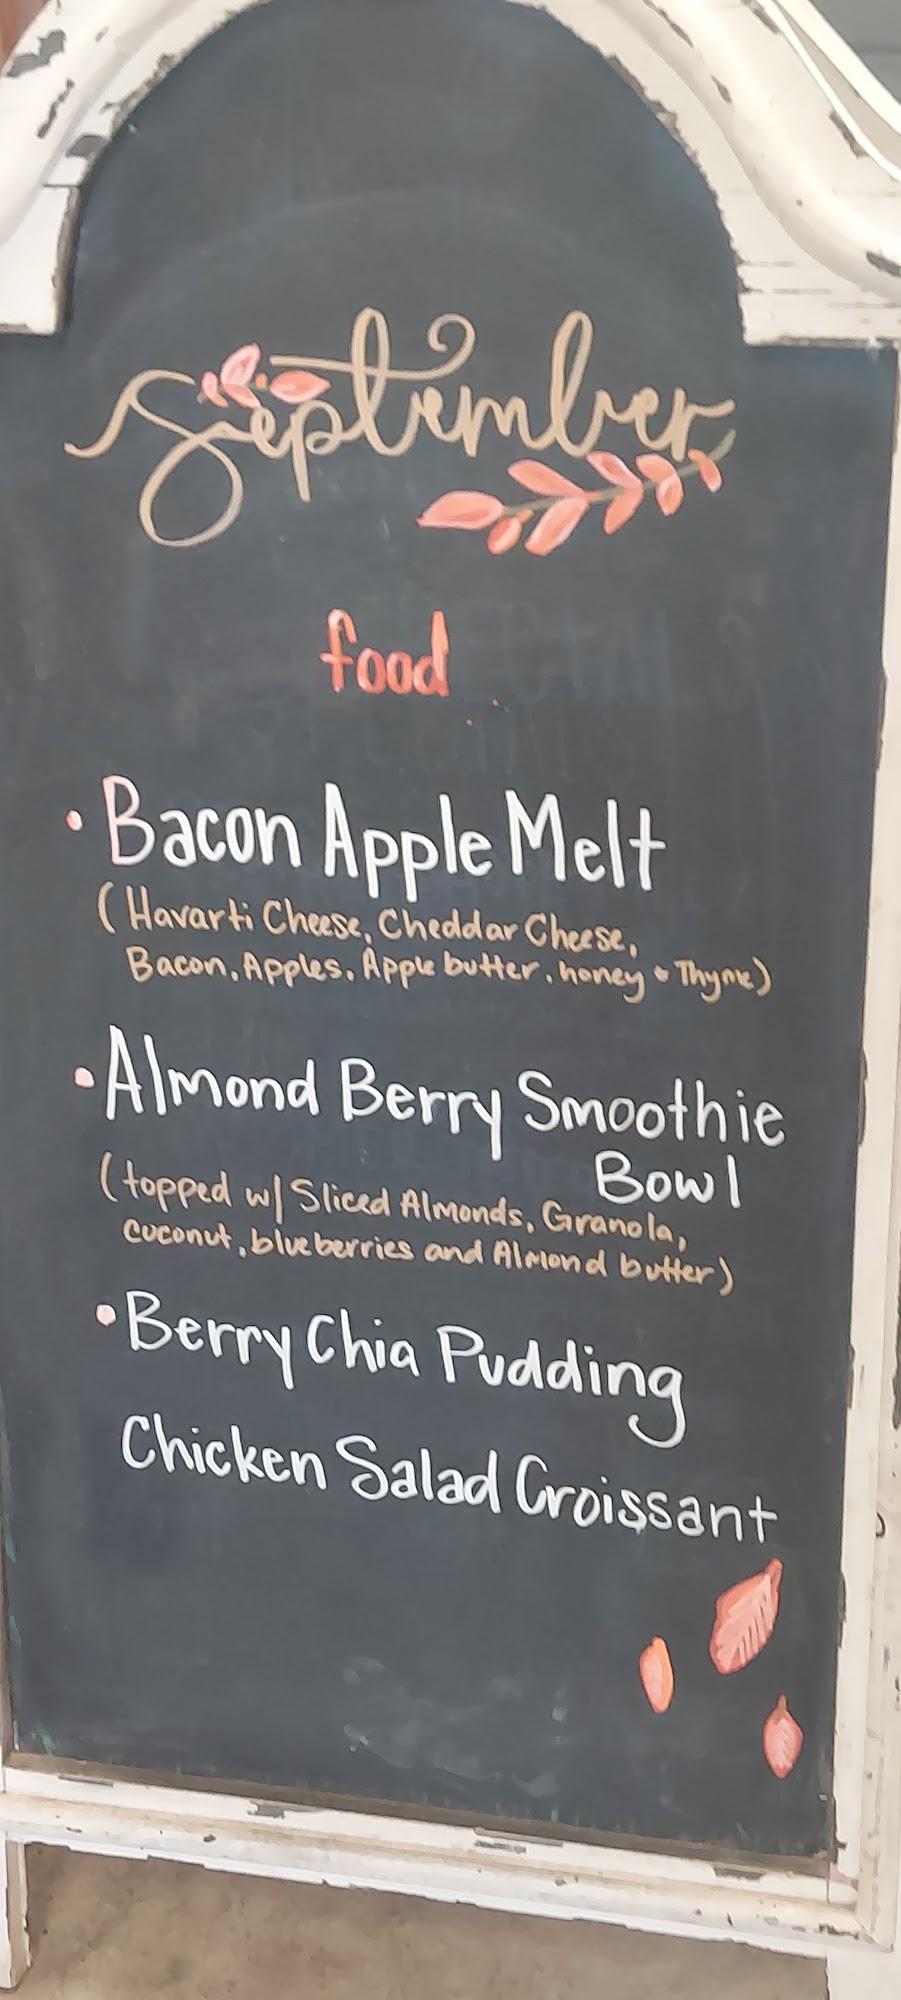 September
food
• Bacon Apple Melt
(Havarti Cheese, Cheddar Cheese,
Bacon, Apples, Apple butter, honey & Thyme)
• Almond Berry Smoothie
Bowl
(topped w/ Sliced Almonds, Granola,
coconut, blueberries and Almond butter)
• Berry Chia Pudding
Chicken Salad Croissant